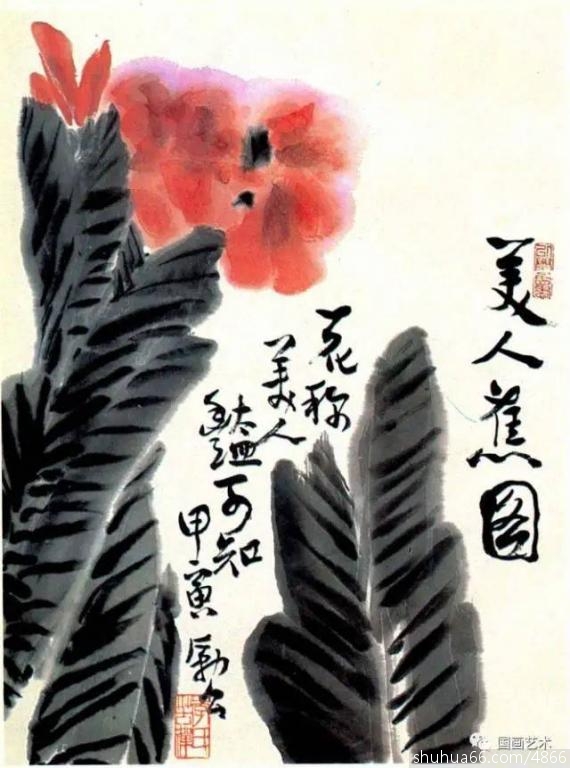 美人蕉图
花称
美人
豔可知
甲寅励公
国画艺术
shuhua66.com/4866